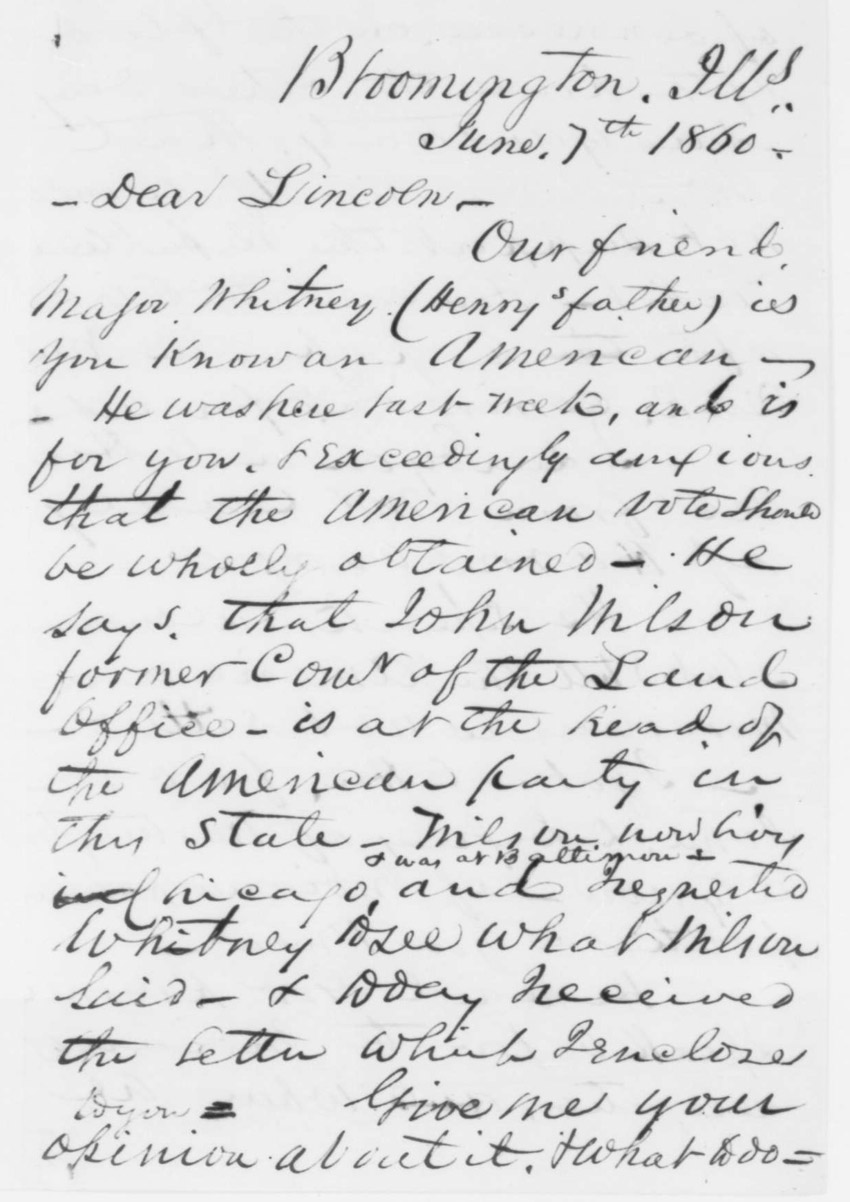 Bloomington. Ills.
June. 7th 1860 -
- Dear Lincoln -
Our friend
Major. Whitney. (Henrys father) is
you Know an American -
- He was here last week, and is
for you. & Exceedingly anxious
that the American vote should
be wholly obtained - He
says. that John Wilson
former Comr of the Land
Office - is at the head of
the American party in
this State - Wilson now lives
& was at Baltimore -
in Chicago, and I requested
Whitney to see what Wilson
said - & to day I received
the letter which I enclose
to you = Give me your
opinion about it. & What to do =